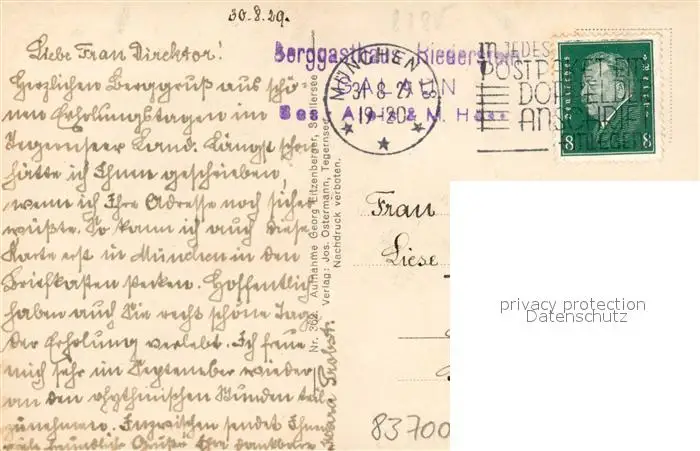 30.8.29.
Liebe Frau Direktor!
Herzlichen Berggruß aus schö-
nen Erholungstagen im
Tegernseer Land. Längst schon
hätte ich Ihnen geschrieben,
wenn ich Ihre Adresse noch sicher
wüßte. So kann ich auch diese
Karte erst in München in den
Briefkasten stecken. Hoffentlich
haben auch Sie recht schöne Tage
der Erholung verlebt. Ich freue
mich sehr im September wieder
an den rhythmischen Stunden teil
zunehmen. Inzwischen sendet Ihnen
viele freundliche Grüße Ihre dankbare
Nr. 362 Aufnahme Georg Eitzenberger, Schliersee
Verlag: Jos. Ostermann, Tegernsee
Nachdruck verboten.
Berggasthaus Riederstein
GALAUN
Bes. A. & M. H
MÜNCHEN
31.8.29
19-20
IN JEDES
POSTPAKET EIN
DOPPEL D.
ANSCHRIFT
EINLEGEN
Deutsches Reich
8 8
Frau
Liese
83700
privacy protection
Datenschutz